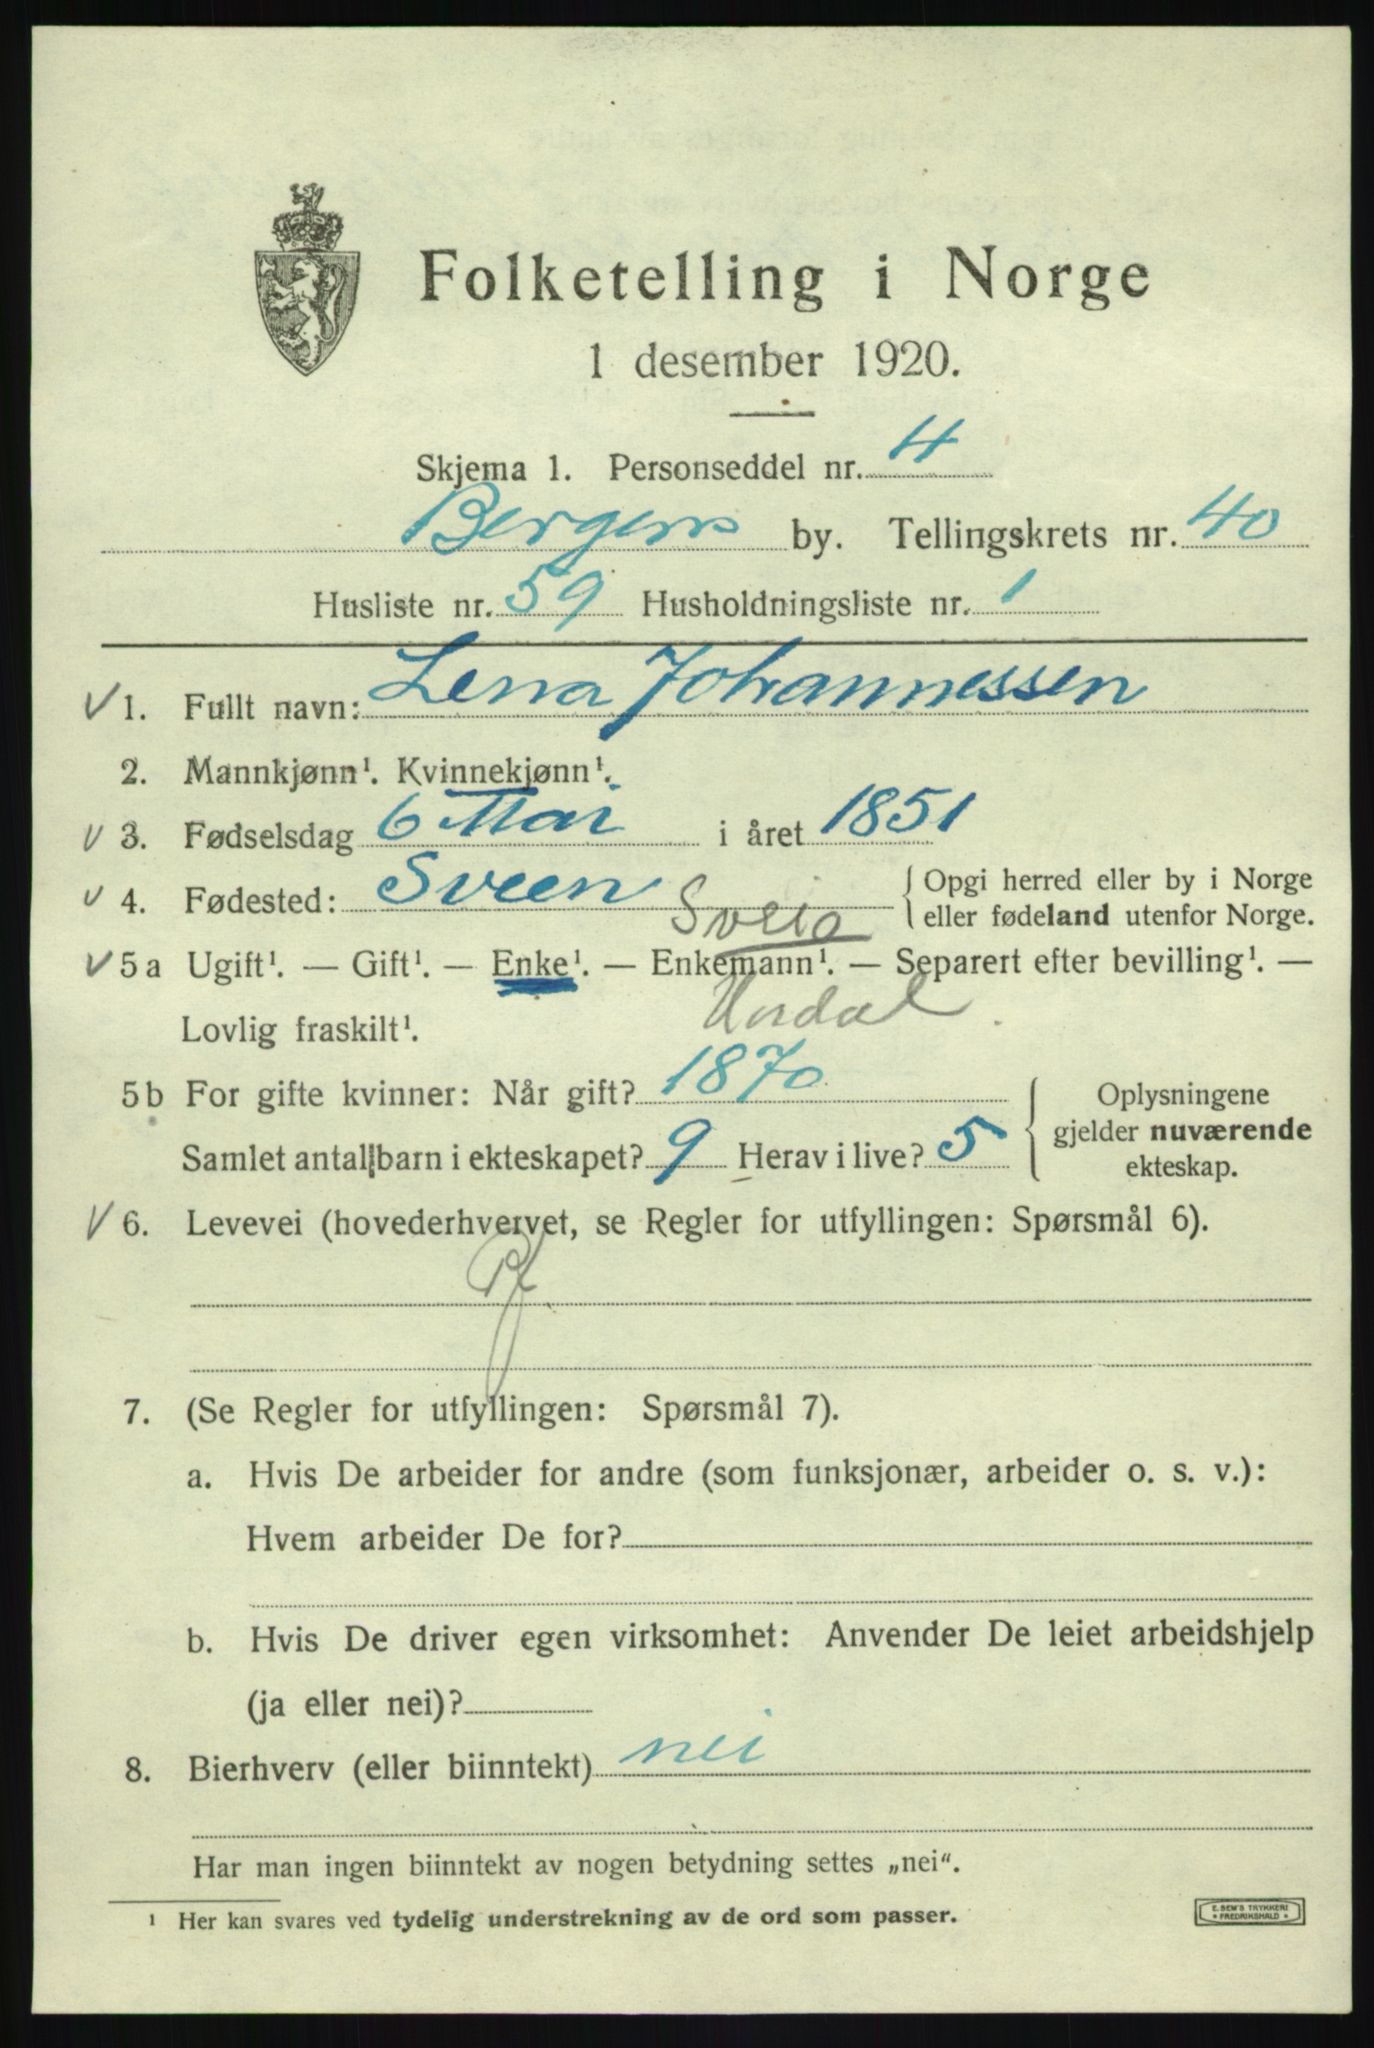 Folketelling i Norge
1 desember 1920.
Skjema 1. Personseddel nr. 4
Bergens by. Tellingskrets nr. 40
Husliste nr. 59 Husholdningsliste nr. 1
V 1. Fullt navn: Lena Johannessen
2. Mannkjønn¹. Kvinnekjønn¹.
V 3. Fødselsdag 6 Mai i året 1851
V 4. Fødested: Sveen Sveio { Opgi herred eller by i Norge
eller fødeland utenfor Norge.
V 5a Ugift¹. — Gift¹. — Enke¹. — Enkemann¹. — Separert efter bevilling¹. —
Lovlig fraskilt¹.
5b For gifte kvinner: Når gift? 1870 { Oplysningene
gjelder nuværende
ekteskap.
Samlet antal barn i ekteskapet? 9 Herav i live? 5
V 6. Levevei (hovederhvervet, se Regler for utfyllingen: Spørsmål 6).
7. (Se Regler for utfyllingen: Spørsmål 7).
a. Hvis De arbeider for andre (som funksjonær, arbeider o. s. v.):
Hvem arbeider De for?
b. Hvis De driver egen virksomhet: Anvender De leiet arbeidshjelp
(ja eller nei)?
8. Bierhverv (eller biinntekt) nei
Har man ingen biinntekt av nogen betydning settes „nei“.
¹ Her kan svares ved tydelig understrekning av de ord som passer.
E. SEM'S TRYKKERI
FREDRIKSHALD